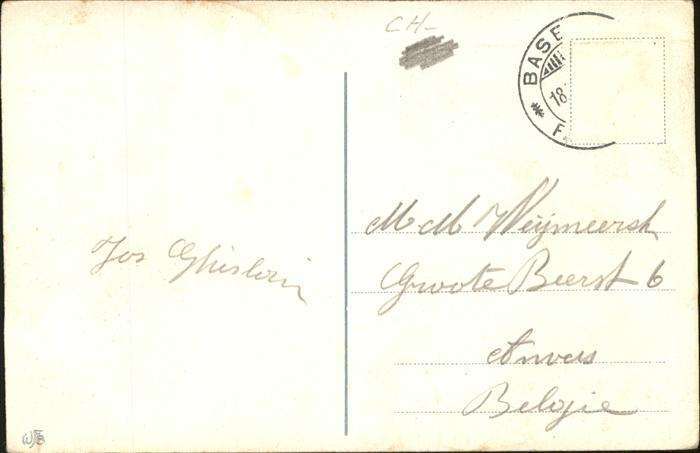 CH-
BASE
18
F
Jos Ghislain
M M Weijmeersh
Groote Beerst 6
Anvers
Belgie